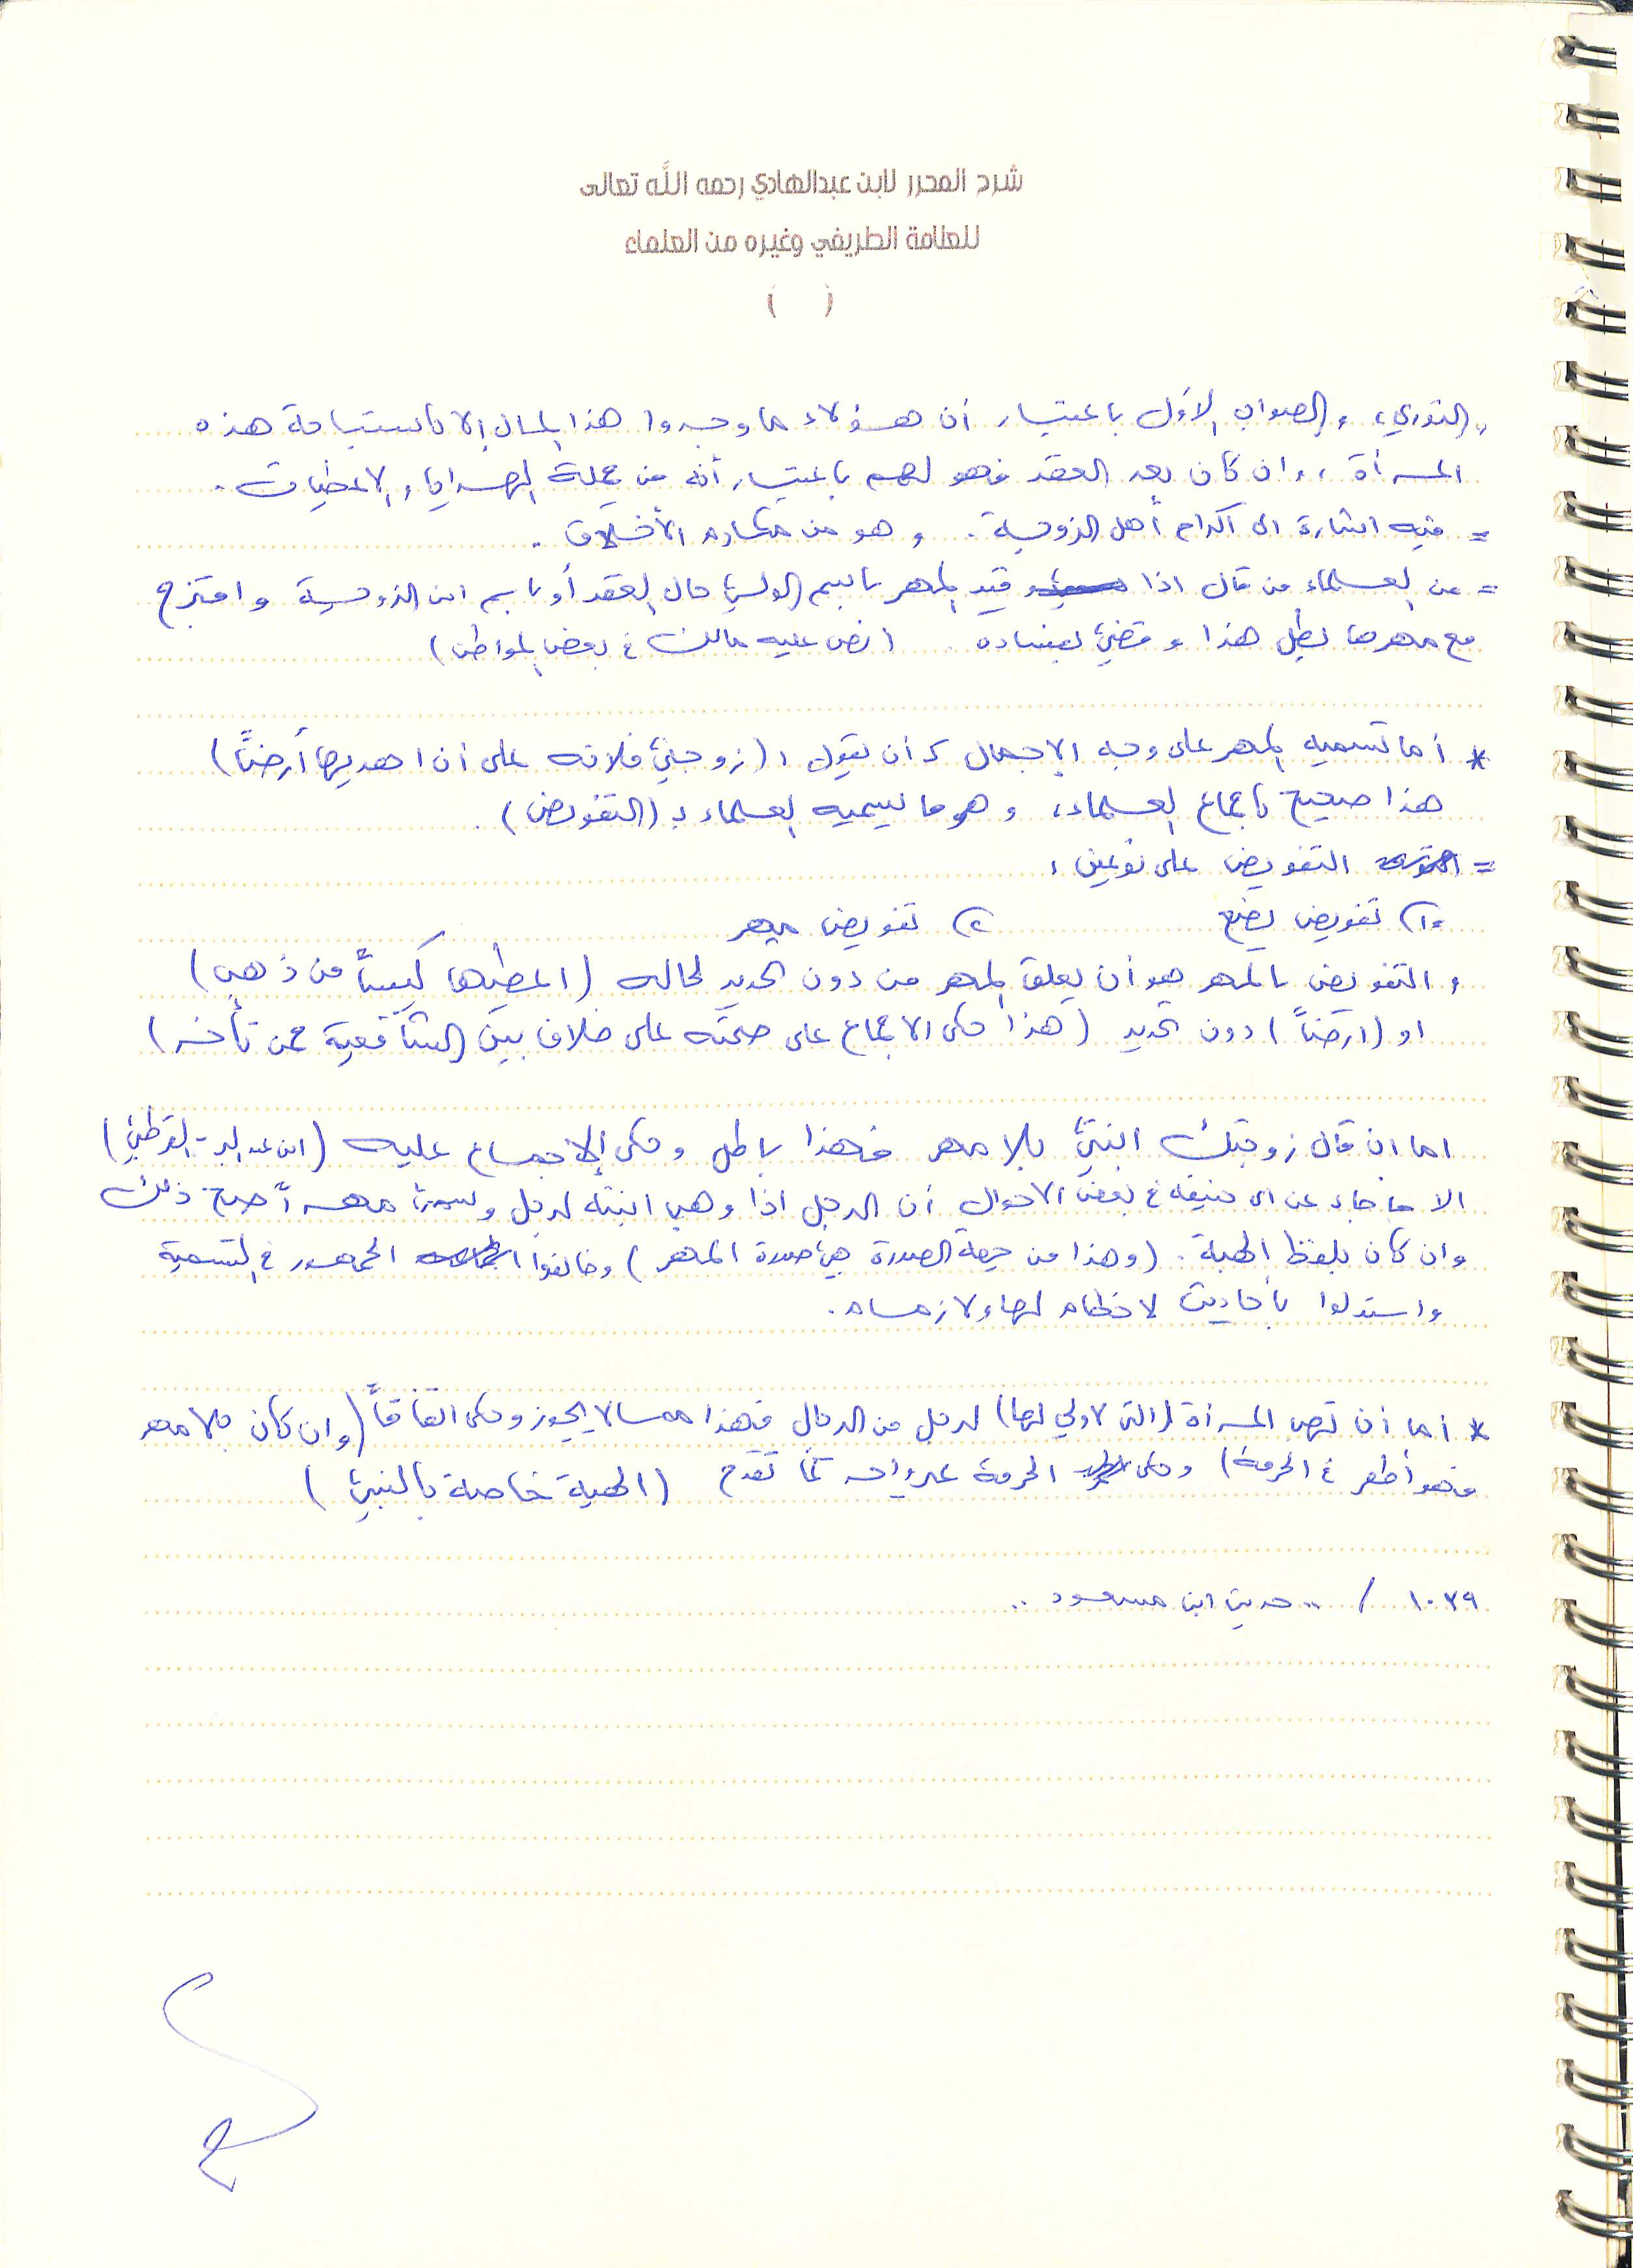 شرح المحرر لابن عبدالهادي رحمه الله تعالى
للعلامة الطريفي وغيره من العلماء
(    )
,, الثوري، والصواب الأول باعتبار أن هؤلاء ما وجدوا هذا المال إلا باستباحة هذه
المرأة ,, وان كان بعد العقد فهو لهم باعتبار أنه من جملة الهدايا والاعطيات .
= فيه اشارة الى اكرام أهل الزوجة . وهو من مكارم الأخلاق .
= من العلماء من قال اذا قيد المهر باسم الولي حال العقد أو باسم ابن الزوجة وامتزج
مع مهرها بطل هذا وقضي بفساده (نص عليه مالك في بعض المواطن)
* أما تسميه المهر على وجه الإجمال كأن يقول : (زوجني فلانه على أن اهديها أرضاً)
هذا صحيح باجماع العلماء، وهو ما يسميه العلماء بـ (التفويض) .
= التفويض على نوعين :
١) تفويض بضع ٢) تفويض مهر
والتفويض بالمهر هو أن يعلق المهر من دون تحديد لحاله (اعطيها كيساً من ذهب)
او (ارضاً) دون تحديد (هذا حكى الاجماع على صحته على خلاف بين الشافعية ممن تأخر)
اما ان قال زوجتك ابنتي بلا مهر فهذا باطل وحكى الإجماع عليه (ابن عبدالبر - القرطبي)
الا ما جاء عن ابي حنيفه في بعض الاحوال أن الرجل اذا وهب ابنته لرجل وسمى مهراً صح ذلك
وان كان بلفظ الهبة . (وهذا من جهة الصورة هي صورة المهر) وخالفوا الجمهور في التسمية
واستدلوا بأحاديث لا خطام لها ولا زمام .
* أما أن تهب المرأة (التي لا ولي لها) لرجل من الرجال فهذا مما لا يجوز وحكى اتفاقاً (وان كان بلا مهر
فهو أظهر في الحرمة) وحكى الحرمة غير واحد كما تقدم (الهبة خاصة بالنبي)
١٠٣٩ / ,, حديث ابن مسعود ,,